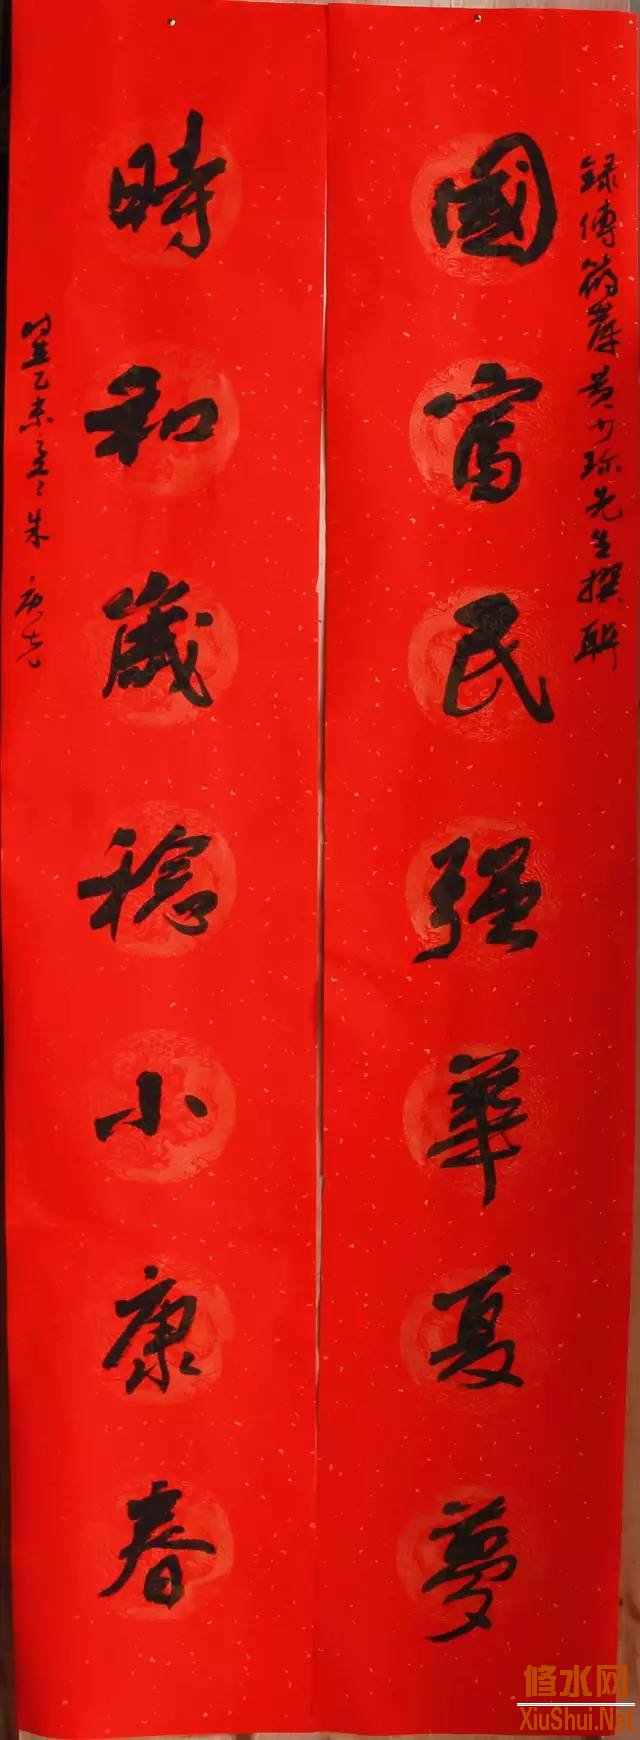 錄傅筱峯黄少珍先生撰聯
國富民强華夏夢
時和歲稔小康春
乙未
朱
修水网
XiuShui.Net